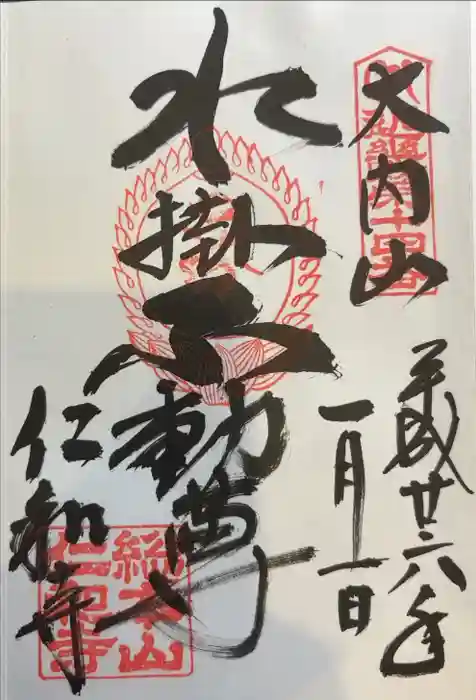 大内山
平成廿六年
一月十一日
水掛不動尊
仁和寺
総本山
仁和寺